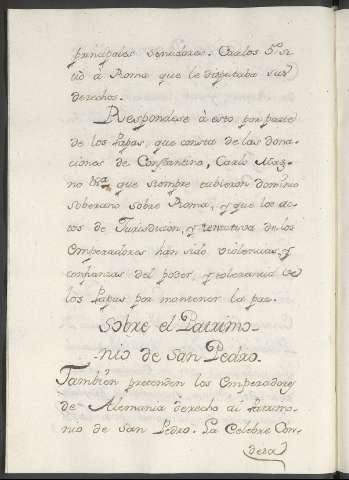 principales Senadores. Carlos 5º si
tió à Roma que le disputaba sus
derechos.
Respondese à esto por parte
de los Papas, que consta de las dona
ciones de Constantino, Carlo Mag
no &ca que siempre tubieron dominio
soberano sobre Roma, y que los ac
tos de Jurisdicion, y tentativa de los
Emperadores han sido violencias, y
confianzas del poder, y tolerancia de
los Papas por mantener la paz.
Sobre el Patrimo-
-nio de San Pedro.
Tambien pretenden los Emperadores
de Alemania derecho al Patrimo-
nio de San Pedro. La Celebre Con-
desa